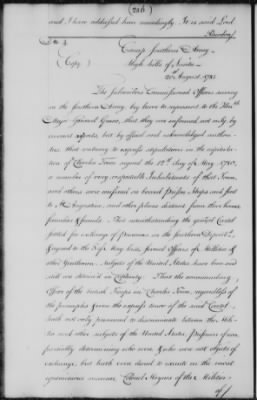 (286)
and I have addressed him accordingly. It is said Lord
Rawdon
(Copy)
Camp Southern Army
High hills of Santee
20th August, 1781
The Subscribers Commissioned Officers serving
in the Southern Army, beg leave to represent to the Honble
Major General Greene, that they are informed not only by
current reports, but by official and acknowledged authori-
ties, that contrary to express stipulations in the capitula-
tion of Charles Town signed the 12th day of May 1780,
a number of very respectable Inhabitants of that Town,
and others were confined on board Prison Ships and sent
to St Augustine, and other places distant from their homes
families & friends. That notwithstanding the general Cartel
settled for exchange of Prisoners in the Southern Departt.
& agreed to the 3d of May last, several Officers of Militia &
other Gentlemen, Subjects of the United States have been and
still are detained in Captivity: That the commanding
Officer of the British Troops in Charles Town, regardless of
the principles & even the express tenor of the said Cartel
hath not only presumed to discriminate between the Mili-
tia and other subjects of the United States, Prisoners from
determining who were & who were not objects of
exchange, but hath even dared to execute in the most
ignominious manner Colonel Haynes of the Militia
of